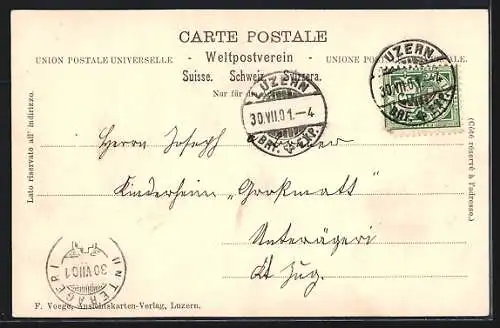 CARTE POSTALE
UNION POSTALE UNIVERSELLE - Weltpostverein - UNIONE POSTALE
Suisse. Schweiz. Svizzera.
Nur für die
LUZERN
30.VII.01.–4
BRF. EXP.
LUZERN
30.VII.01.–4
BRF. EXP.
Lato riservato all' indirizzo.
(Côté réservé à l'adresse.)
Herrn Joseph
Kinderheim „Großmatt"
Unterägeri
Kt Zug.
UNTERÄGERI
30 VII 01
F. Voege, Ansichtskarten-Verlag, Luzern.